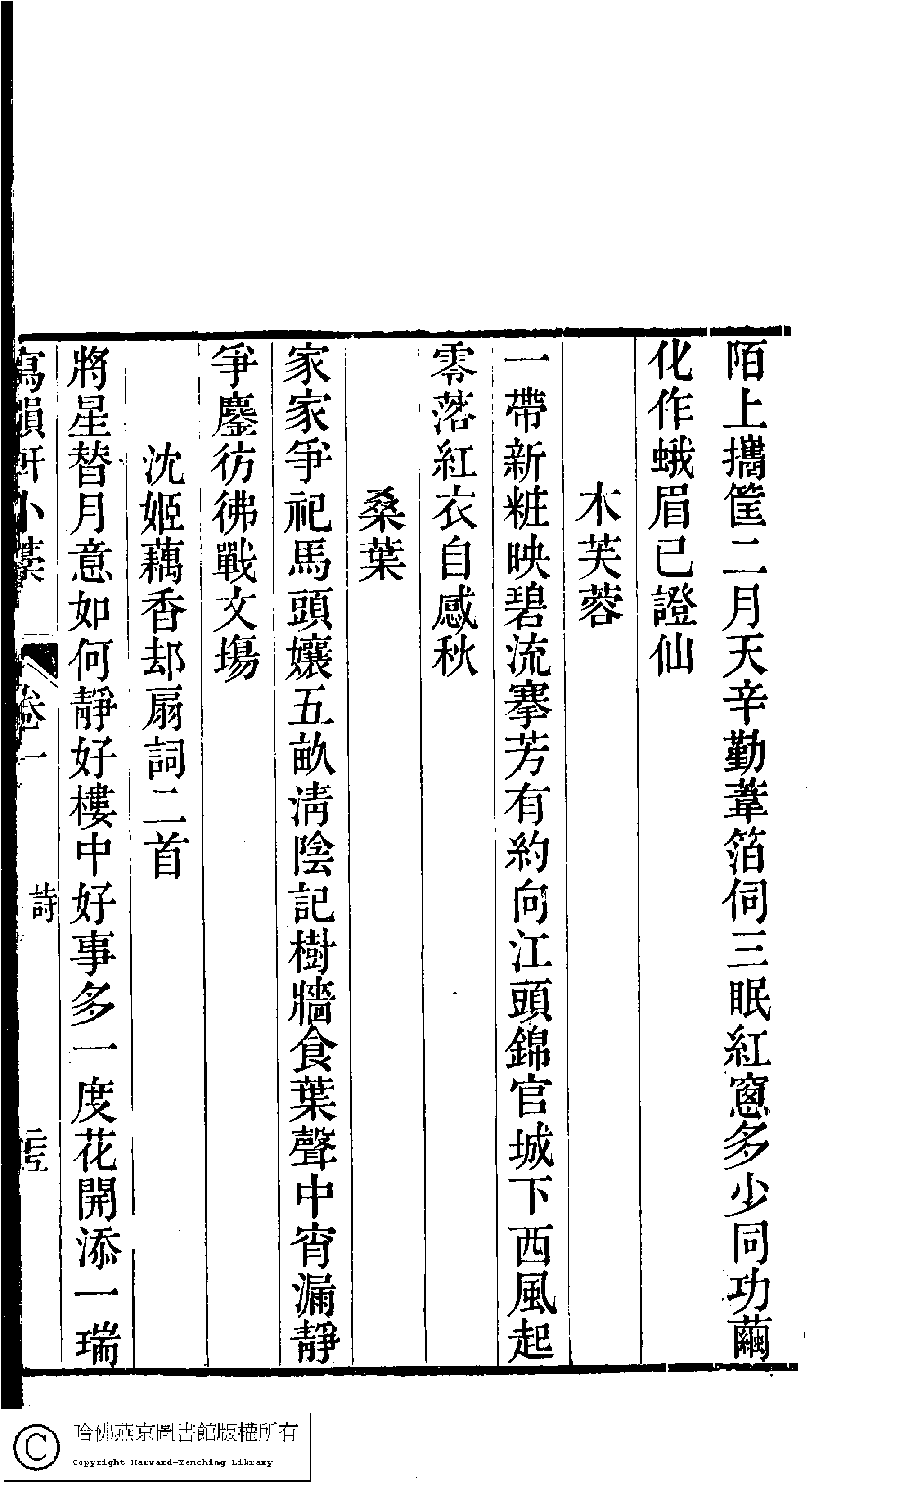 陌上攜筐二月天辛勤葦箔伺三眠紅窻多少同功繭
化作蛾眉已證仙
木芙蓉
一帶新粧映碧流搴芳有約向江頭錦官城下西風起
零落紅衣自感秋
桑葉
家家爭祀馬頭孃五畝淸陰記樹牆食葉聲中宵漏靜
爭鏖彷彿戰文場
沈姬藕香却扇詞二首
將星替月意如何靜好樓中好事多一度花開添一瑞
寫韻軒小藁 卷一 詩
哈佛燕京圖書館版權所有
Copyright Harvard-Yenching Library